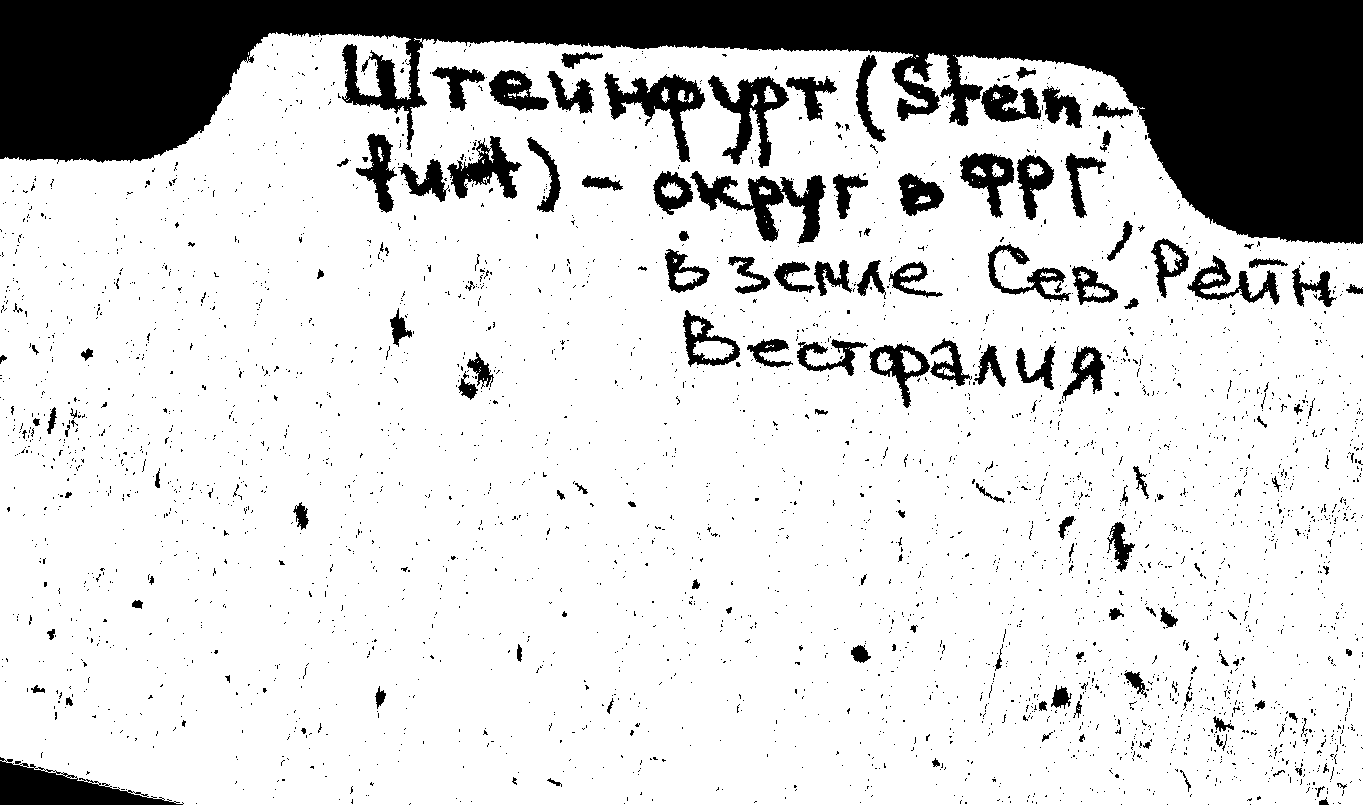 Штейнфурт (Stein-
furt) - округ в ФРГ,
в земле Сев. Рейн-
Вестфалия